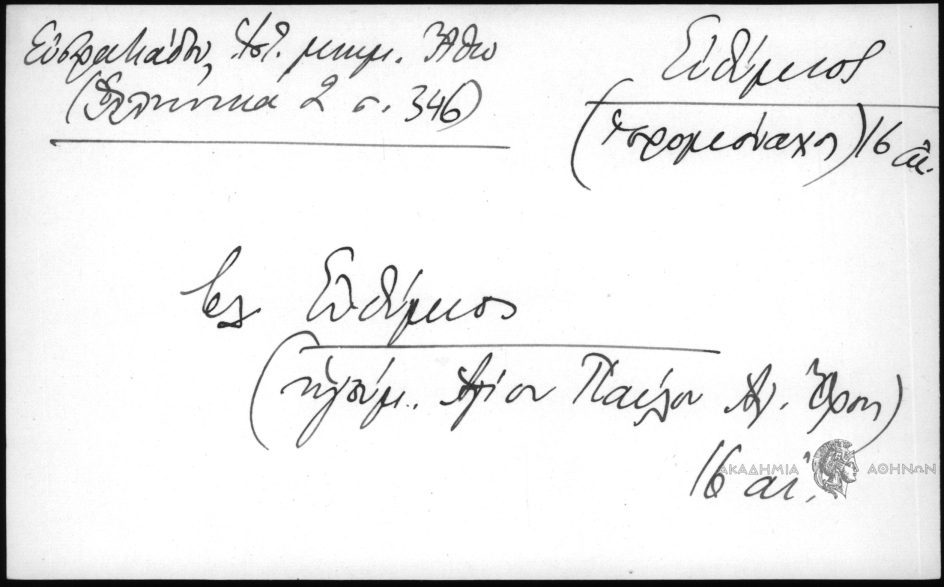 Εὐστρατιάδου, Ἱστ. μνημ. Ἄθω
(Ἑλληνικά 2 σ. 346)
Εὐθύμιος
(ἱερομόναχος) 16 αἰ.
βλ. Εὐθύμιος
(ἡγούμ. Ἁγίου Παύλου Ἁγ. Ὄρους)
16 αἰ.
ΑΚΑΔΗΜΙΑ ΑΘΗΝΩΝ